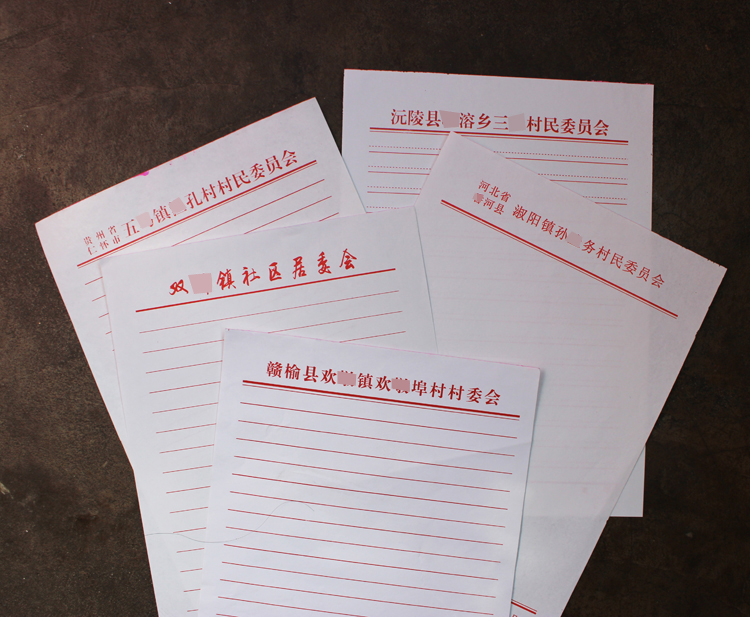 沅陵县 溶乡三 村民委员会
贵州省
仁怀市 五 镇 孔村村民委员会
河北省
香河县 淑阳镇孙 务村民委员会
双 镇社区居委会
赣榆县欢 镇欢 埠村村委会